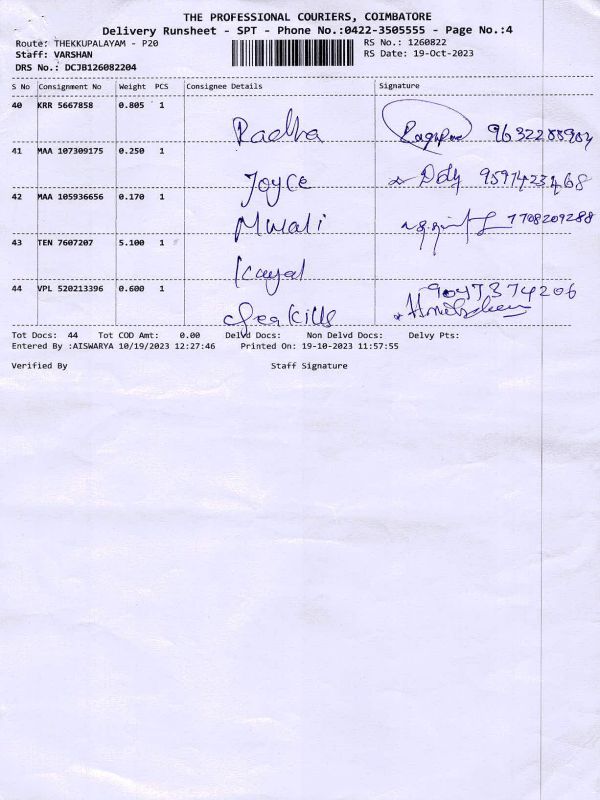 THE PROFESSIONAL COURIERS, COIMBATORE
Delivery Runsheet - SPT - Phone No.:0422-3505555 - Page No.:4
Route: THEKKUPALAYAM - P20 RS No.: 1260822
Staff: VARSHAN RS Date: 19-Oct-2023
DRS No.: DCJB126082204
S No Consignment No Weight PCS Consignee Details Signature
40 KRR 5667858 0.805 1
Radha
41 MAA 107309175 0.250 1
Joyce 9597423468
42 MAA 105936656 0.170 1
Mwali 7708209288
43 TEN 7607207 5.100 1
Kayal
44 VPL 520213396 0.600 1 9047374206
Tot Docs: 44 Tot COD Amt: 0.00 Delvd Docs: Non Delvd Docs: Delvy Pts:
Entered By :AISWARYA 10/19/2023 12:27:46 Printed On: 19-10-2023 11:57:55
Verified By Staff Signature